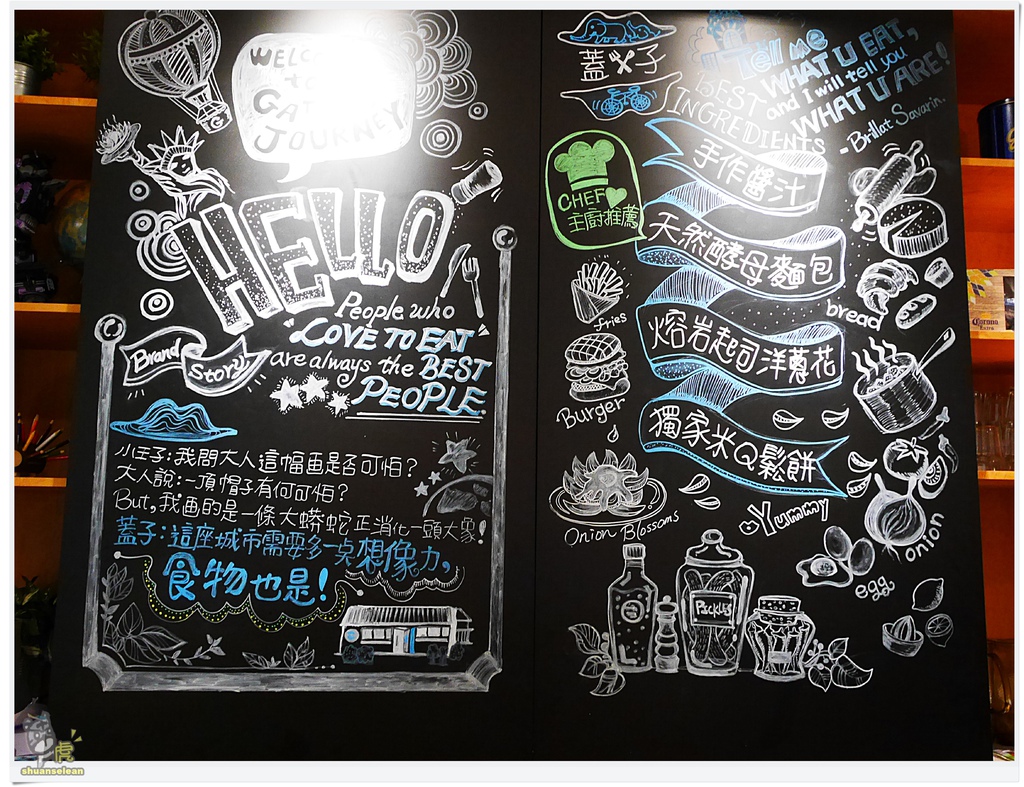 WELCOME
to
GATHER
JOURNEY
G
HELLO
People who
"LOVE TO EAT"
are always the BEST
PEOPLE.
Brand
Story
小王子：我問大人這幅畫是否可怕？
大人說：一頂帽子有何可怕？
But, 我畫的是一條大蟒蛇正消化一頭大象！
蓋子：這座城市需要多一点想像力，
食物也是！
蓋子
BEST
INGREDIENTS
Tell me
WHAT U EAT,
and I will tell you
WHAT U ARE!
- Brillat Savarin.
CHEF
主廚推薦
手作醬汁
天然酵母麵包
熔岩起司洋蔥花
獨家米Q鬆餅
fries
Burger
Onion Blossoms
bread
Yummy
onion
egg
Pickles
Corona
Extra
虎
shuanselean